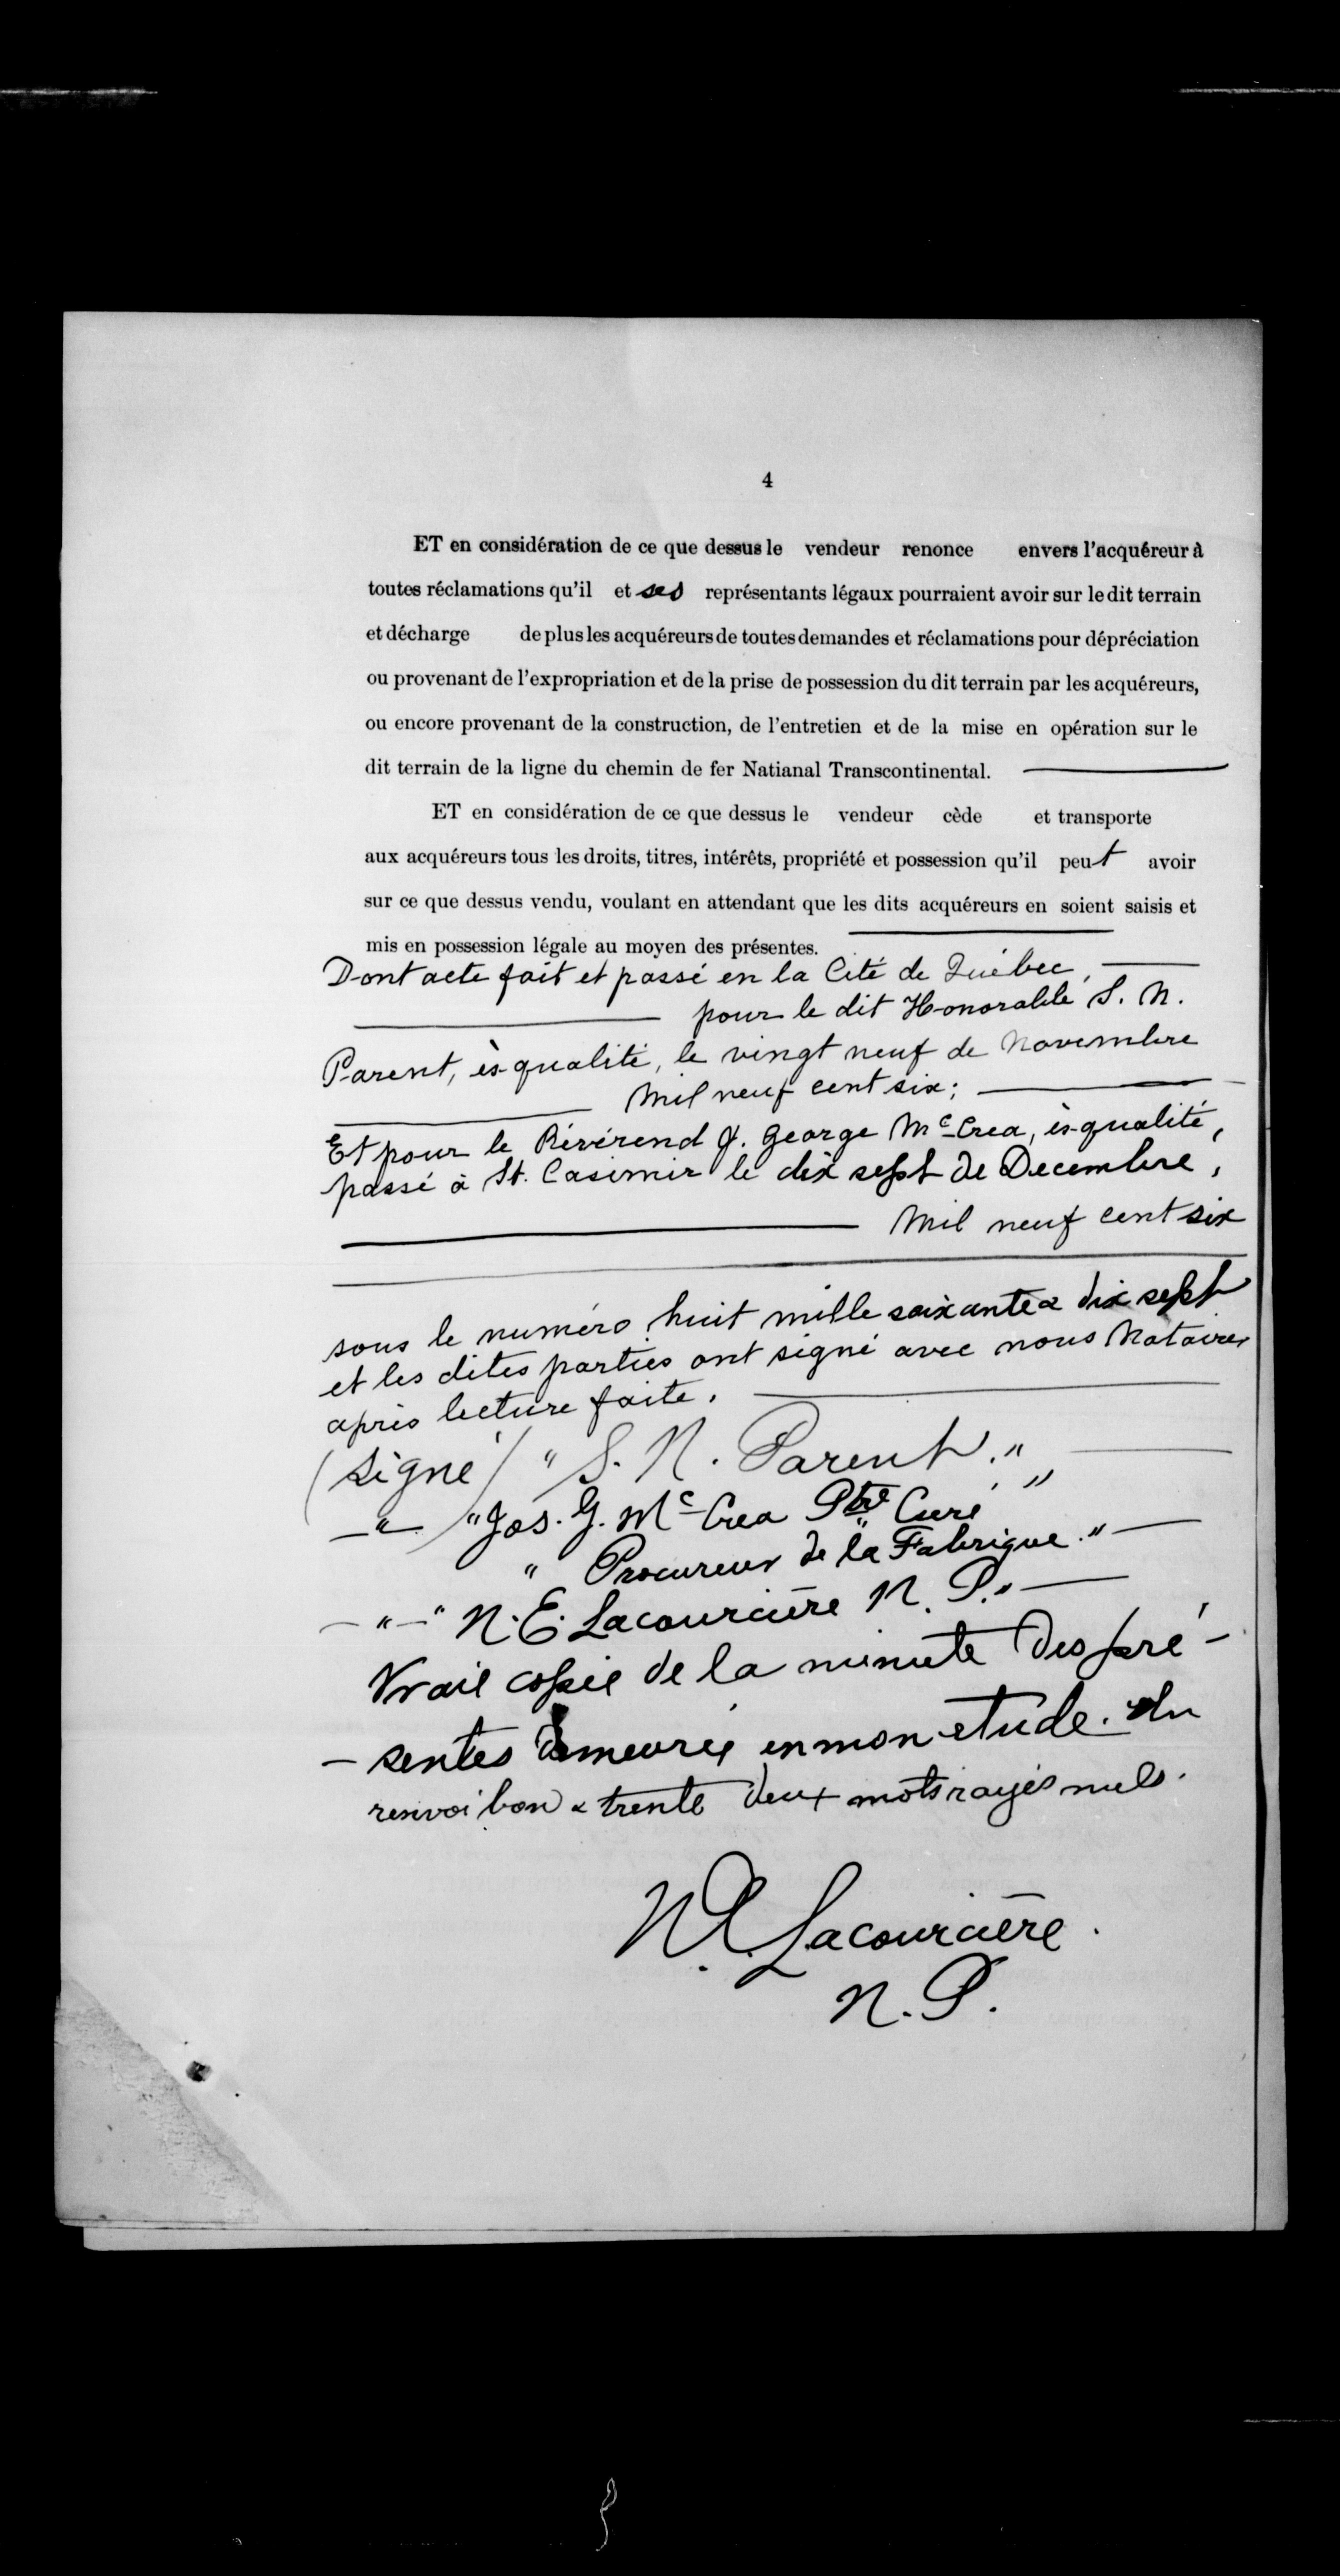 4
ET en considération de ce que dessus le vendeur renonce envers l'acquéreur à
toutes réclamations qu'il et ses représentants légaux pourraient avoir sur le dit terrain
et décharge de plus les acquéreurs de toutes demandes et réclamations pour dépréciation
ou provenant de l'expropriation et de la prise de possession du dit terrain par les acquéreurs,
ou encore provenant de la construction, de l'entretien et de la mise en opération sur le
dit terrain de la ligne du chemin de fer Natianal Transcontinental.
ET en considération de ce que dessus le vendeur cède et transporte
aux acquéreurs tous les droits, titres, intérêts, propriété et possession qu'il peut avoir
sur ce que dessus vendu, voulant en attendant que les dits acquéreurs en soient saisis et
mis en possession légale au moyen des présentes.
Dont acte fait et passé en la Cité de Québec,
pour le dit Honorable S. N.
Parent, ès-qualité, le vingt neuf de Novembre
Mil neuf cent six;
Et pour le Révérend J. George McCrea, ès-qualité,
passé à St. Casimir le dix sept de Decembre,
Mil neuf cent six
sous le numéro huit mille soixante & dix sept
et les dites parties ont signé avec nous Notaires
après lecture faite.
(Signé) "S. N. Parent."
—"— "Jos. G. McCrea Ptre Curé"
" Procureur de la Fabrique."
—"— "N. E. Lacourcière N. P."
Vraie copie de la minute des pré-
-sentes demeurée en mon etude. Un
renvoi bon & trente deux mots rayés nuls.
N.E. Lacourcière.
N. P.